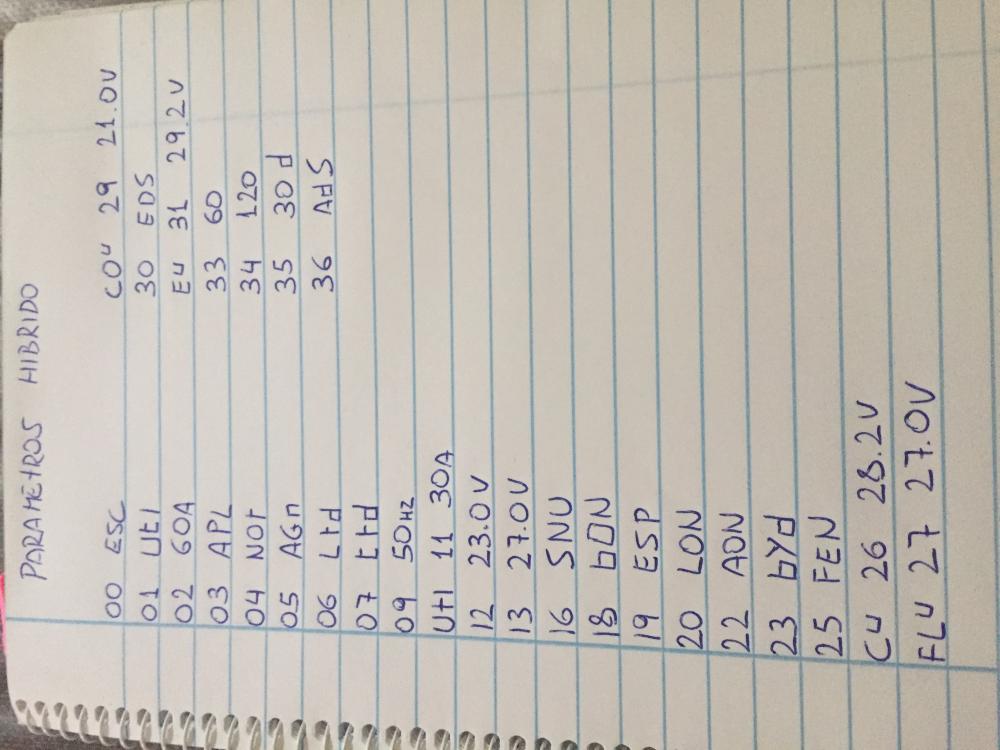 PARAMETROS HIBRIDO
00 ESC
01 UtI
02 60A
03 APL
04 NOr
05 AGn
06 Ltd
07 ttd
09 50Hz
UtI 11 30A
12 23.0V
13 27.0V
16 SNU
18 bON
19 ESP
20 LON
22 AON
23 bYd
25 FEN
CU 26 28.2V
FLU 27 27.0V
COU 29 21.0V
30 EDS
EU 31 29.2V
33 60
34 120
35 30d
36 AdS